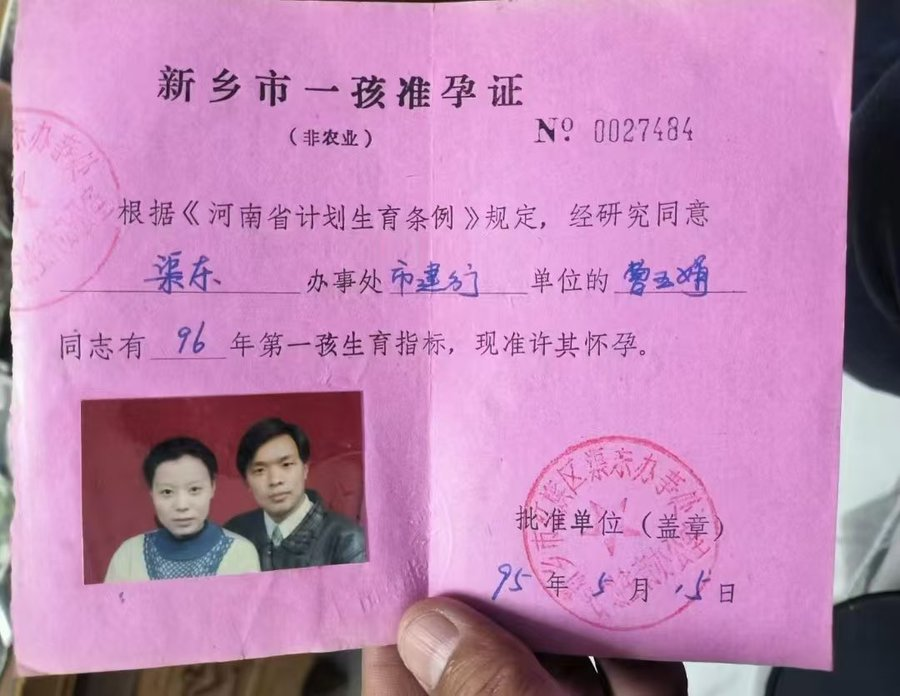 新乡市一孩准孕证
(非农业)
Nº 0027484
根据《河南省计划生育条例》规定，经研究同意
渠东办事处市建行单位的曹玉娟
同志有96年第一孩生育指标，现准许其怀孕。
批准单位（盖章）
95年5月15日
渠东办事处